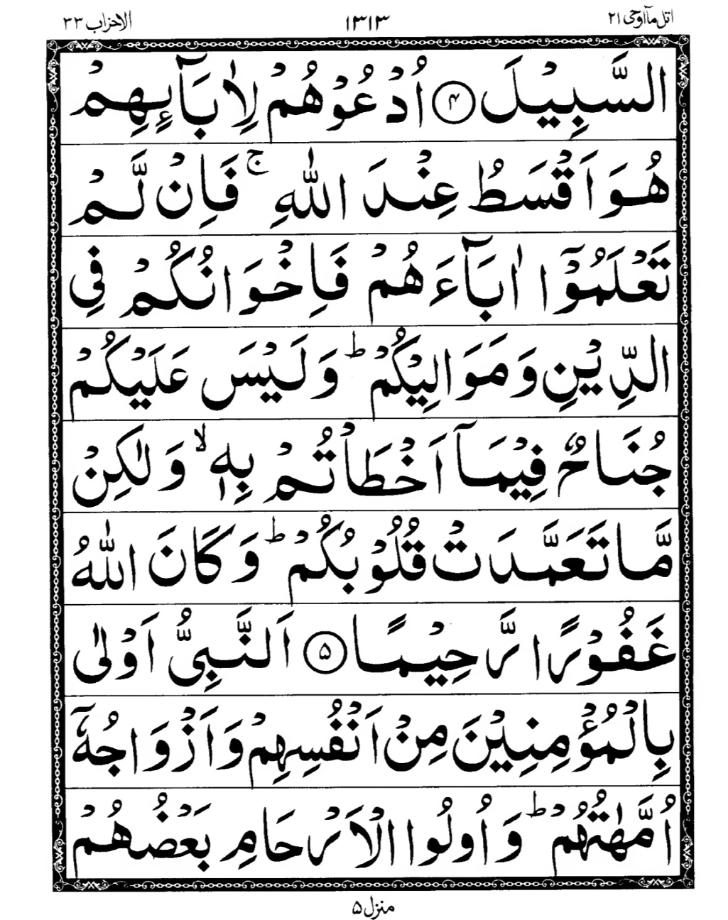 اتل مآاوحی ۲۱ ۱۳۱۳ الاحزاب ۳۳
السَّبِيْلَ ۴ اُدْعُوْهُمْ لِاٰبَآئِهِمْ
هُوَ اَقْسَطُ عِنْدَ اللّٰهِ ۚ فَاِنْ لَّمْ
تَعْلَمُوْۤا اٰبَآءَهُمْ فَاِخْوَانُكُمْ فِى
الدِّيْنِ وَمَوَالِيْكُمْ ؕ وَلَيْسَ عَلَيْكُمْ
جُنَاحٌ فِيْمَاۤ اَخْطَاْتُمْ بِهٖ ۙ وَلٰكِنْ
مَّا تَعَمَّدَتْ قُلُوْبُكُمْ ؕ وَكَانَ اللّٰهُ
غَفُوْرًا رَّحِيْمًا ۵ اَلنَّبِىُّ اَوْلٰى
بِالْمُؤْمِنِيْنَ مِنْ اَنْفُسِهِمْ وَاَزْوَاجُهٗۤ
اُمَّهٰتُهُمْ ؕ وَاُولُوا الْاَرْحَامِ بَعْضُهُمْ
منزل ۵